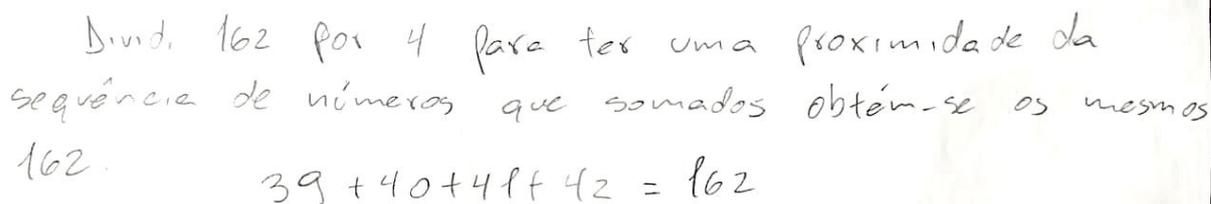 Dividi 162 por 4 para ter uma proximidade da
sequência de números que somados obtém-se os mesmos
162.
39 + 40 + 41 + 42 = 162